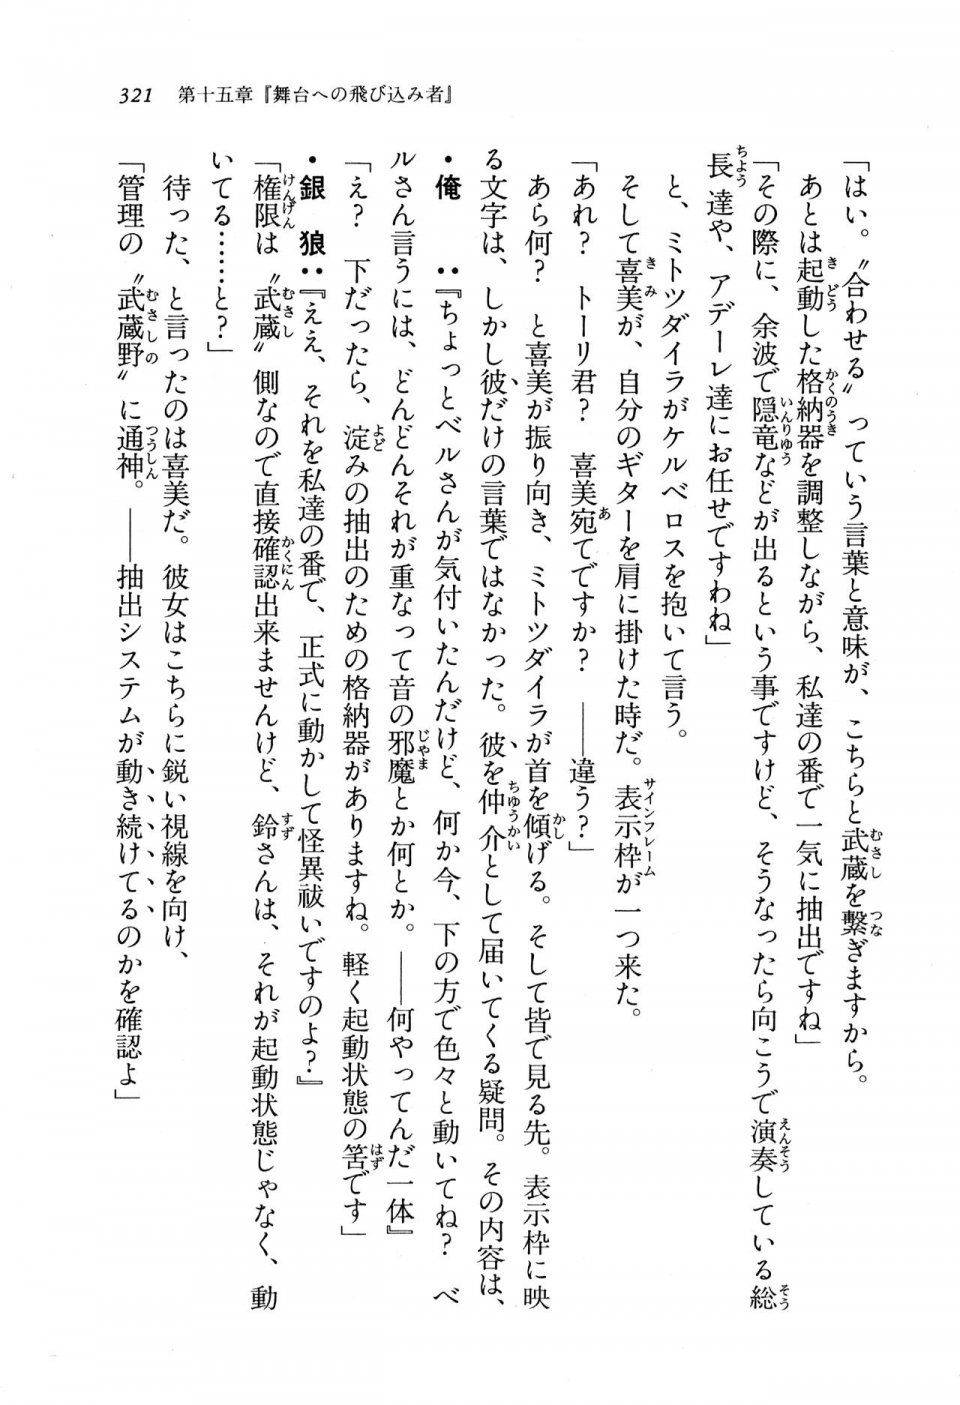 321　第十五章『舞台への飛び込み者』
「はい。〝合わせる〟っていう言葉と意味が、こちらと武蔵を繋ぎますから。
　あとは起動した格納器を調整しながら、私達の番で一気に抽出ですね」
「その際に、余波で隠竜などが出るという事ですけど、そうなったら向こうで演奏している総
長達や、アデーレ達にお任せですわね」
　と、ミトツダイラがケルベロスを抱いて言う。
　そして喜美が、自分のギターを肩に掛けた時だ。表示枠が一つ来た。
「あれ？　トーリ君？　喜美宛てですか？　――違う？」
　あら何？　と喜美が振り向き、ミトツダイラが首を傾げる。そして皆で見る先。表示枠に映
る文字は、しかし彼だけの言葉ではなかった。彼を仲介として届いてくる疑問。その内容は、
・俺　　：『ちょっとベルさんが気付いたんだけど、何か今、下の方で色々と動いてね？　ベ
ルさん言うには、どんどんそれが重なって音の邪魔とか何とか。――何やってんだ一体』
「え？　下だったら、淀みの抽出のための格納器がありますね。軽く起動状態の筈です」
・銀　狼：『ええ、それを私達の番で、正式に動かして怪異祓いですのよ？』
「権限は〝武蔵〟側なので直接確認出来ませんけど、鈴さんは、それが起動状態じゃなく、動
いてる……と？」
　待った、と言ったのは喜美だ。彼女はこちらに鋭い視線を向け、
「管理の〝武蔵野〟に通神。――抽出システムが動き続けてるのかを確認よ」